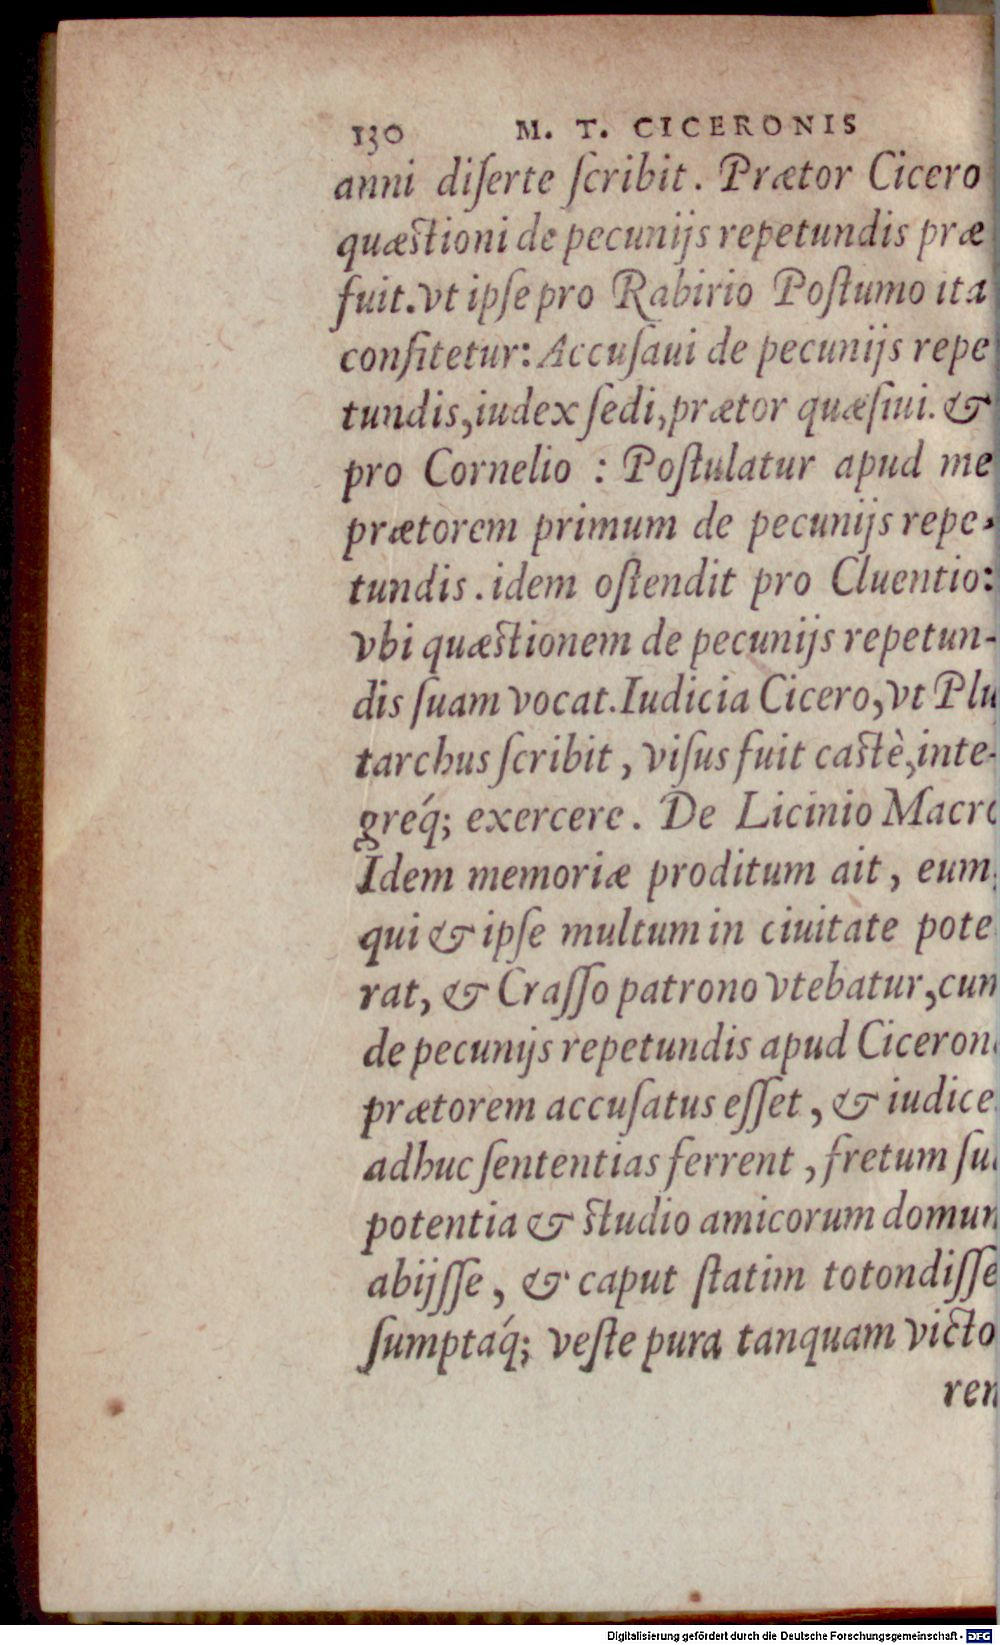 130 M. T. CICERONIS
anni diserte scribit. Prætor Cicero
quæstioni de pecunijs repetundis præ
fuit. vt ipse pro Rabirio Postumo ita
confitetur: Accusaui de pecunijs repe
tundis, iudex sedi, prætor quæsiui. &
pro Cornelio : Postulatur apud me
prætorem primum de pecunijs repe-
tundis. idem ostendit pro Cluentio:
vbi quæstionem de pecunijs repetun-
dis suam vocat. Iudicia Cicero, vt Plu
tarchus scribit, visus fuit castè, inte-
gréq; exercere. De Licinio Macro
Idem memoriæ proditum ait, eum,
qui & ipse multum in ciuitate pote
rat, & Crasso patrono vtebatur, cum
de pecunijs repetundis apud Ciceron
prætorem accusatus esset, & iudice
adhuc sententias ferrent, fretum su
potentia & studio amicorum domum
abijsse, & caput statim totondisse
sumptáq; veste pura tanquam victo
rem
Digitalisierung gefördert durch die Deutsche Forschungsgemeinschaft - DFG